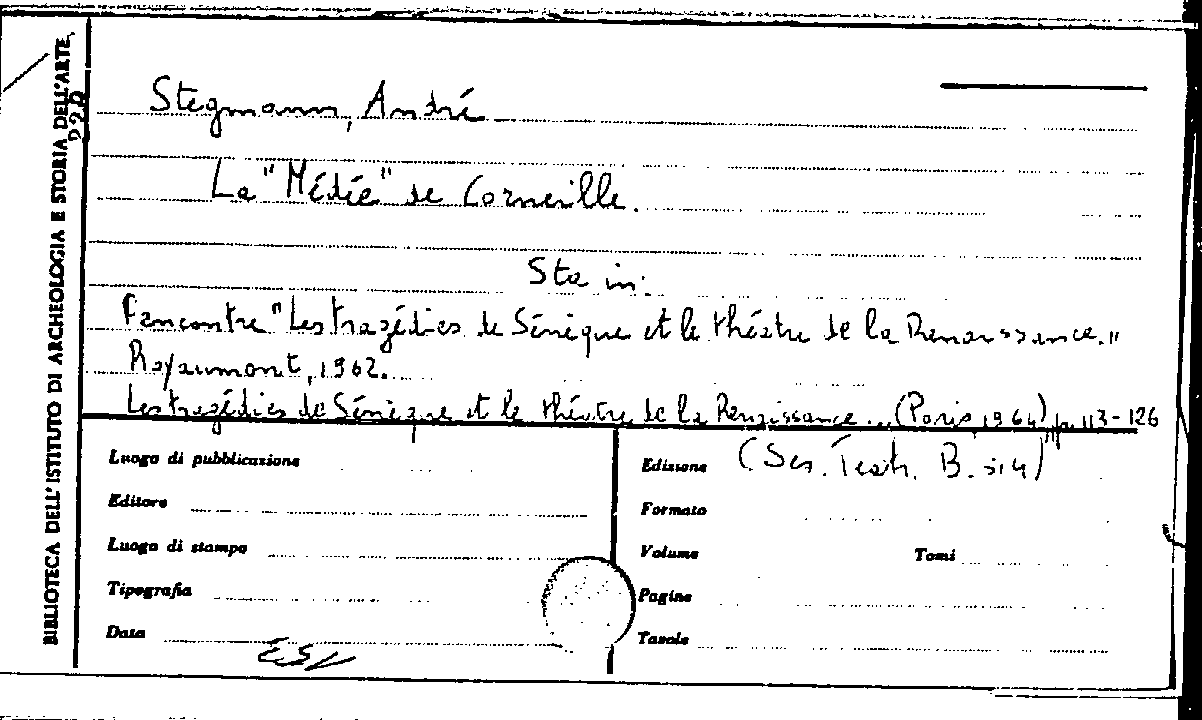 BIBLIOTECA DELL'ISTITUTO DI ARCHEOLOGIA E STORIA DELL'ARTE
Stegmann, André
La "Médée" de Corneille.
Sta in:
Rencontre "Les tragédies de Sénèque et le théatre de la Renaissance."
Royaumont, 1962.
Les tragédies de Sénèque et le théatre de la Renaissance... (Paris, 1964), p. 113-126
Luogo di pubblicazione
Edizione
Editore
Formato
Luogo di stampa
Volume Tomi
Tipografia
Pagine
Data
Tavole